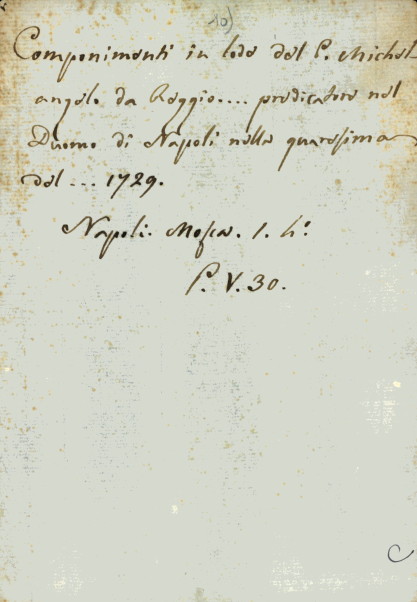 10)
Componimenti in lode del P. Michel
angelo da Reggio.... predicatore nel
Duomo di Napoli nella quaresima
del ... 1729.
Napoli. Mosca. 1. 4°.
P. V. 30.
C